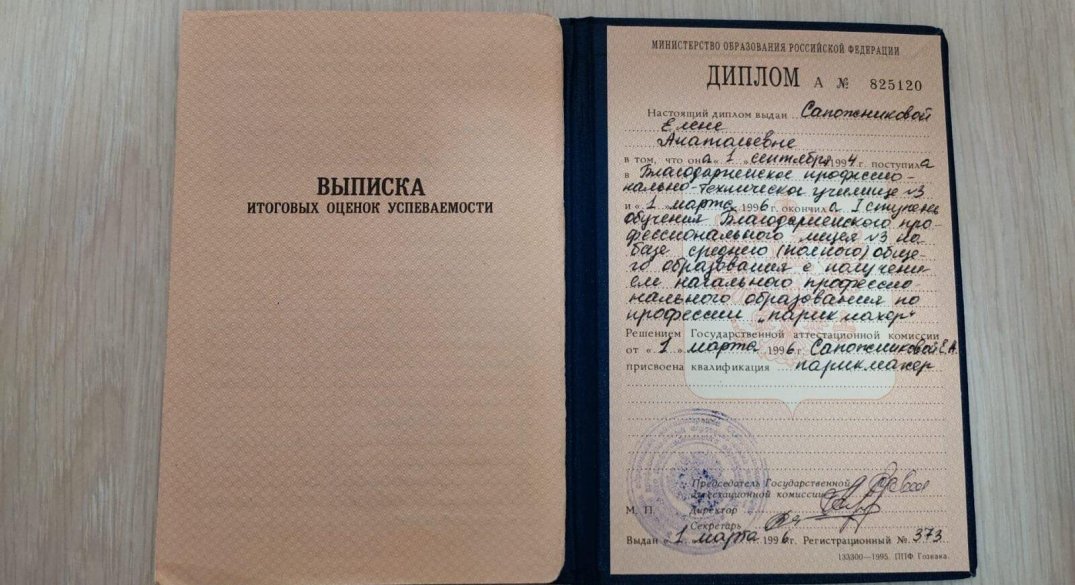 ВЫПИСКА
ИТОГОВЫХ ОЦЕНОК УСПЕВАЕМОСТИ
МИНИСТЕРСТВО ОБРАЗОВАНИЯ РОССИЙСКОЙ ФЕДЕРАЦИИ
ДИПЛОМ А № 825120
Настоящий диплом выдан Сапожниковой
Елене
Анатольевне
в том, что она « 1 » сентября 1994 г. поступила
в Благодарненское профессио-
нально-техническое училище №3
и « 1 » марта 1996 г. окончила I ступень
обучения Благодарненского про-
фессионального лицея №3 на
базе среднего (полного) обще-
го образования с получени-
ем начального профессио-
нального образования по
профессии „парикмахер"
Решением Государственной аттестационной комиссии
от « 1 » марта 1996 г. Сапожниковой Е.А.
присвоена квалификация парикмахер
Председатель Государственной
аттестационной комиссии
М. П. Директор
Секретарь
Выдан « 1 » марта 1996 г. Регистрационный № 373
133300—1995. ППФ Гознака.